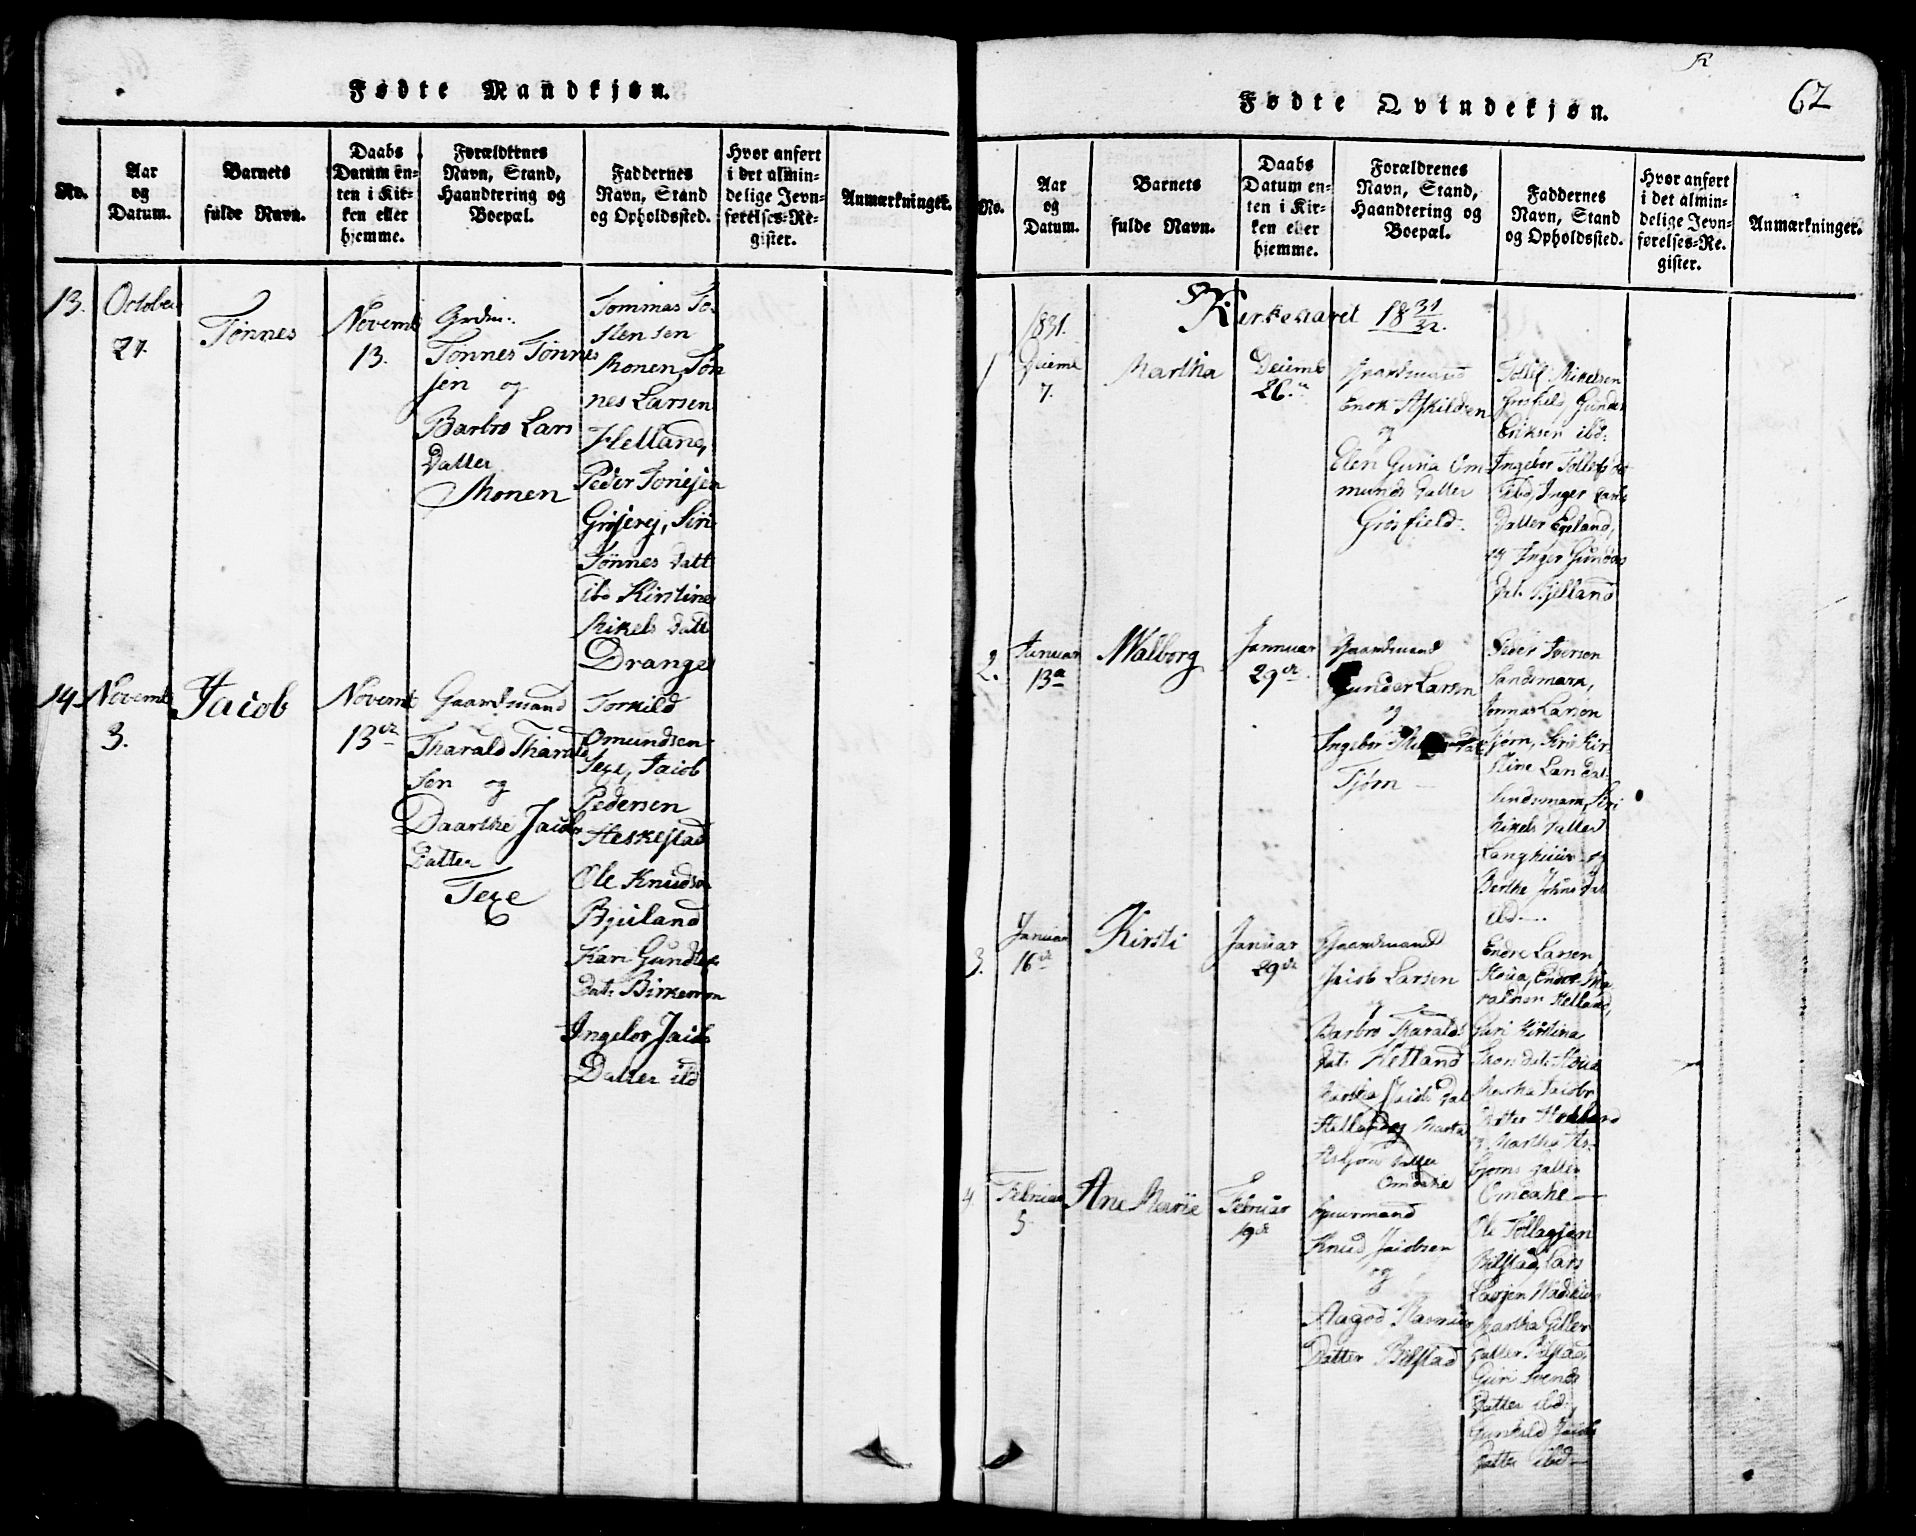 Fødte Mandkjøn.
No.
Aar
og
Datum.
Barnets
fulde Navn.
Daabs
Datum en-
ten i Kir-
ken eller
hjemme.
Forældrenes
Navn, Stand,
Haandtering og
Boepæl.
Faddernes
Navn, Stand
og Opholdssted.
Hvor anført
i det almin-
delige Jevn-
førelses-Re-
gister.
Anmærkninger.
13.
October
27.
Tønnes
Novemb
13.
Tønnes Tønne
sen og
Barbro Lars
Datter
Monen
Tommas To
stensen
Monen, Tøn
nes Larsen
Helland,
Peder
Siri
Tønnes Datt
ibd Kirstine
Mikels Datt
Drange
14
Novemb
3.
Jacob
Novemb
13de
Gaardmand
Tharald Tharald
sen og
Daarthe Jacobs
Datter
Texe
Torkild
Omundsen
Texe, Jacob
Pedersen
Heskestad
Ole Knudsen
Bjuland
Kari Gundles
Dat: Birkemoen
Ingebor Jacobs
Datter ibd
62
Fødte Qvindekjøn.
No.
Aar
og
Datum.
Barnets
fulde Navn.
Daabs
Datum en-
ten i Kir-
ken eller
hjemme.
Forældrenes
Navn, Stand,
Haandtering og
Boepæl.
Faddernes
Navn, Stand
og Opholdssted.
Hvor anført
i det almin-
delige Jevn-
førelses-Re-
gister.
Anmærkninger.
Kirkeaaret 18 31/32.
1831.
1
Decemb
7.
Martha
Decemb
26.
Gaardmand
Enok Askildsen
og
Elen Guria Om
munds Datter
Grøsfield.
Tollef Mikelsen
Grøsfield, Gunder
Eriksen ibd:
Ingebor Tollefs
ibd, Inger Lars
Datter Egeland,
og Inger Gunders
Dat: Bjelland
2.
Januar
13de
Walborg
Januar
29de
Gaardmand
Gunder Larsen
og
Ingebor
Tjørn
Peder Iversen
Sandsmark,
Jonnas Larsen
Tjørn, Siri Kir
stine Lars Dat:
Sandsmark, Siri
Mikels Datter
og
Berthe Johns Dat
ibd
3.
Januar
16de
Kirsti
Januar
29de
Gaardmand
Jacob Larsen
og
Barbro Tharalds
Dat: Helland
Martha Jacobs Dat
Helland og Martha
Asbjørns Datter
Omdahl
Endre Larsen
Skoua, Endre Tha
raldsen Helland,
Guri Kirstina
Dat: Skoua
Martha Jacobs
Datter Helland
og Martha As-
bjørns Datter
Omdahl
4
Februar
5
Ane Marie
Februar
19de
Gaardmand
Knud Jacobsen
og
Aagod Rasmus
Datter Bilstad
Ole Tollagsen
Bilstad, Lars
Larsen
Martha
Datter Bilstad,
Guri Svends
Datter ibd:,
Gunhild Jacobs
Datter ibd